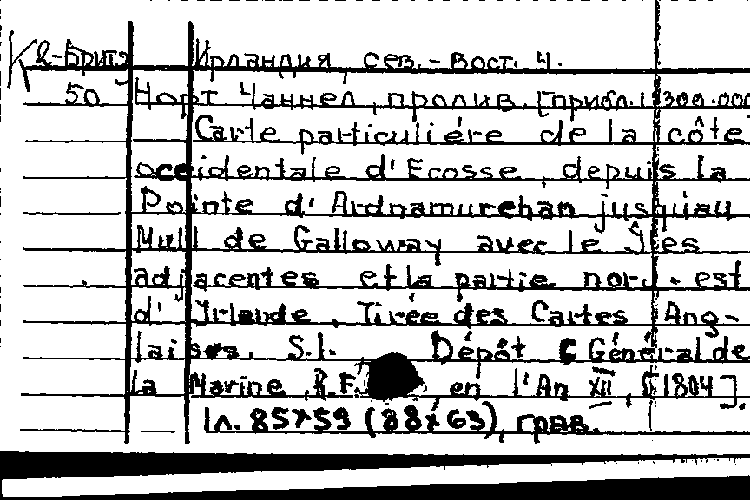 К в-Брит Ирландия, сев.-вост. ч.
50 Норт Чаннел, пролив. [прибл. 1:300.000
Carte particuliére de la côte
occidentale d'Ecosse, depuis la
Pointe d'Ardnamurchan jusquiau
Mull de Galloway avec le Îles
adjacentes et la partie nord-est
d'Irlande. Tirée des Cartes Ang-
laises. S.l. Dépôt Général de
la Marine R.F. en l'An XII, [1804].
1 л. 85x59 (88x63), грав.